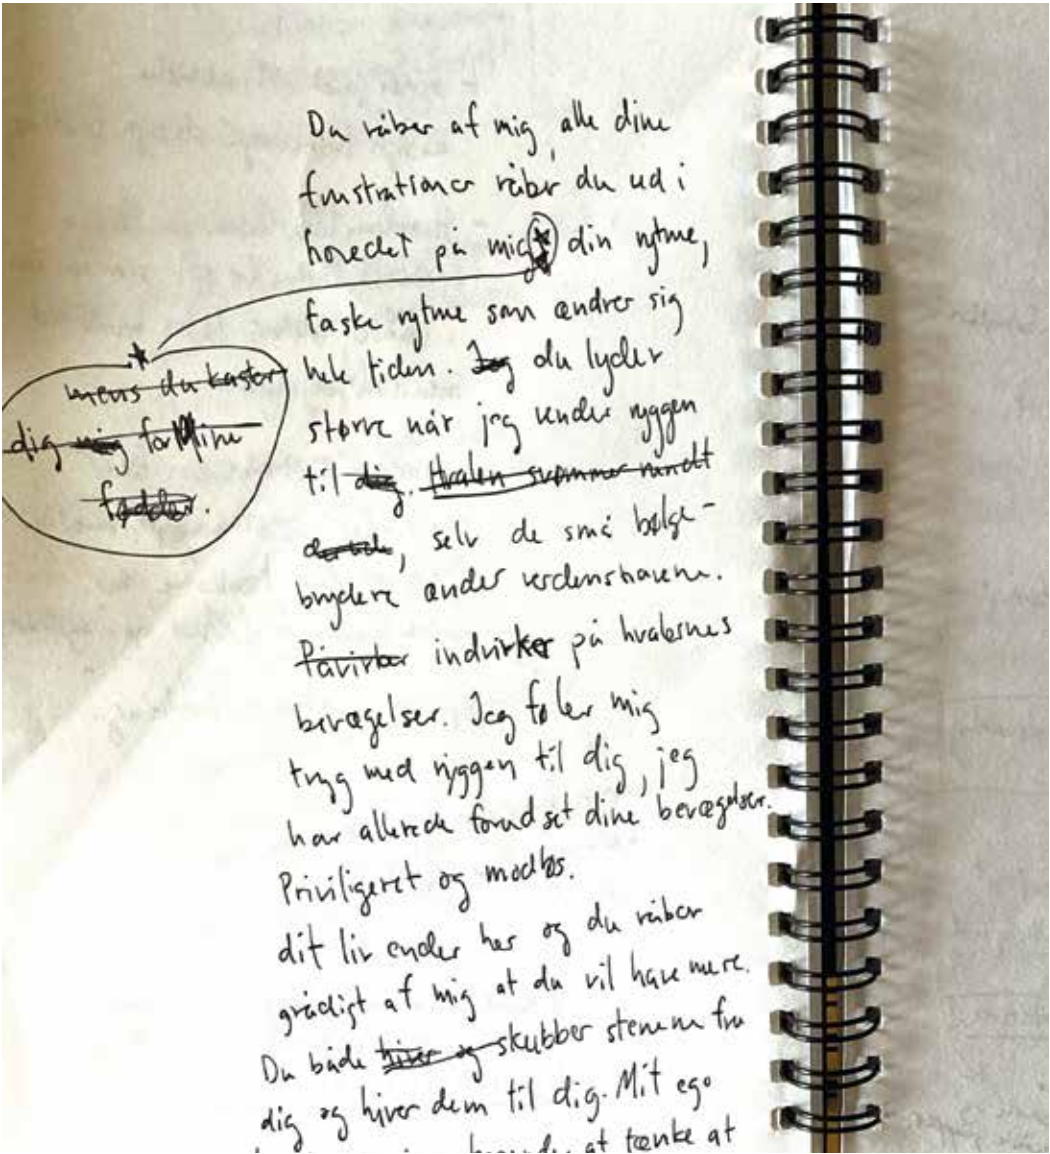 Du råber af mig, alle dine
frustrationer råber du ud i
hovedet på mig * din rytme,
faske rytme som ændrer sig
hele tiden. Jeg du lyder
større når jeg vender ryggen
til dig. Hvalen svømmer rundt
derude, selv de små bølge-
brydere ænder verdenshavene.
Påvirker indvirker på hvalernes
bevægelser. Jeg føler mig
tryg med ryggen til dig, jeg
har allerede forudset dine bevægelser.
Priviligeret og modløs.
dit liv ender her og du råber
grådigt af mig at du vil have mere.
Du både hiver og skubber stenene fra
dig og hiver dem til dig. Mit ego
at tænke at
*
mens du kaster
dig mig for Mine
fødder.